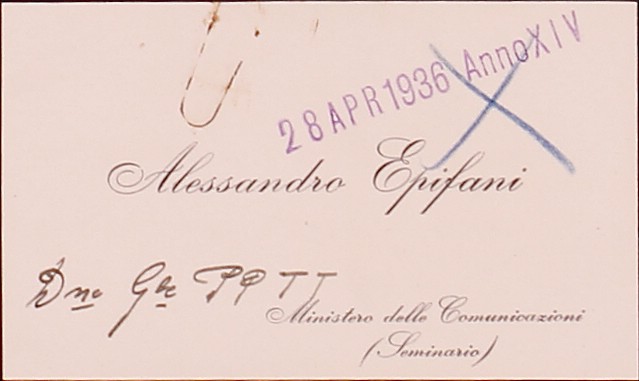 28 APR 1936 Anno XIV
Alessandro Epifani
Dne Gle PP TT
Ministero delle Comunicazioni
(Seminario)